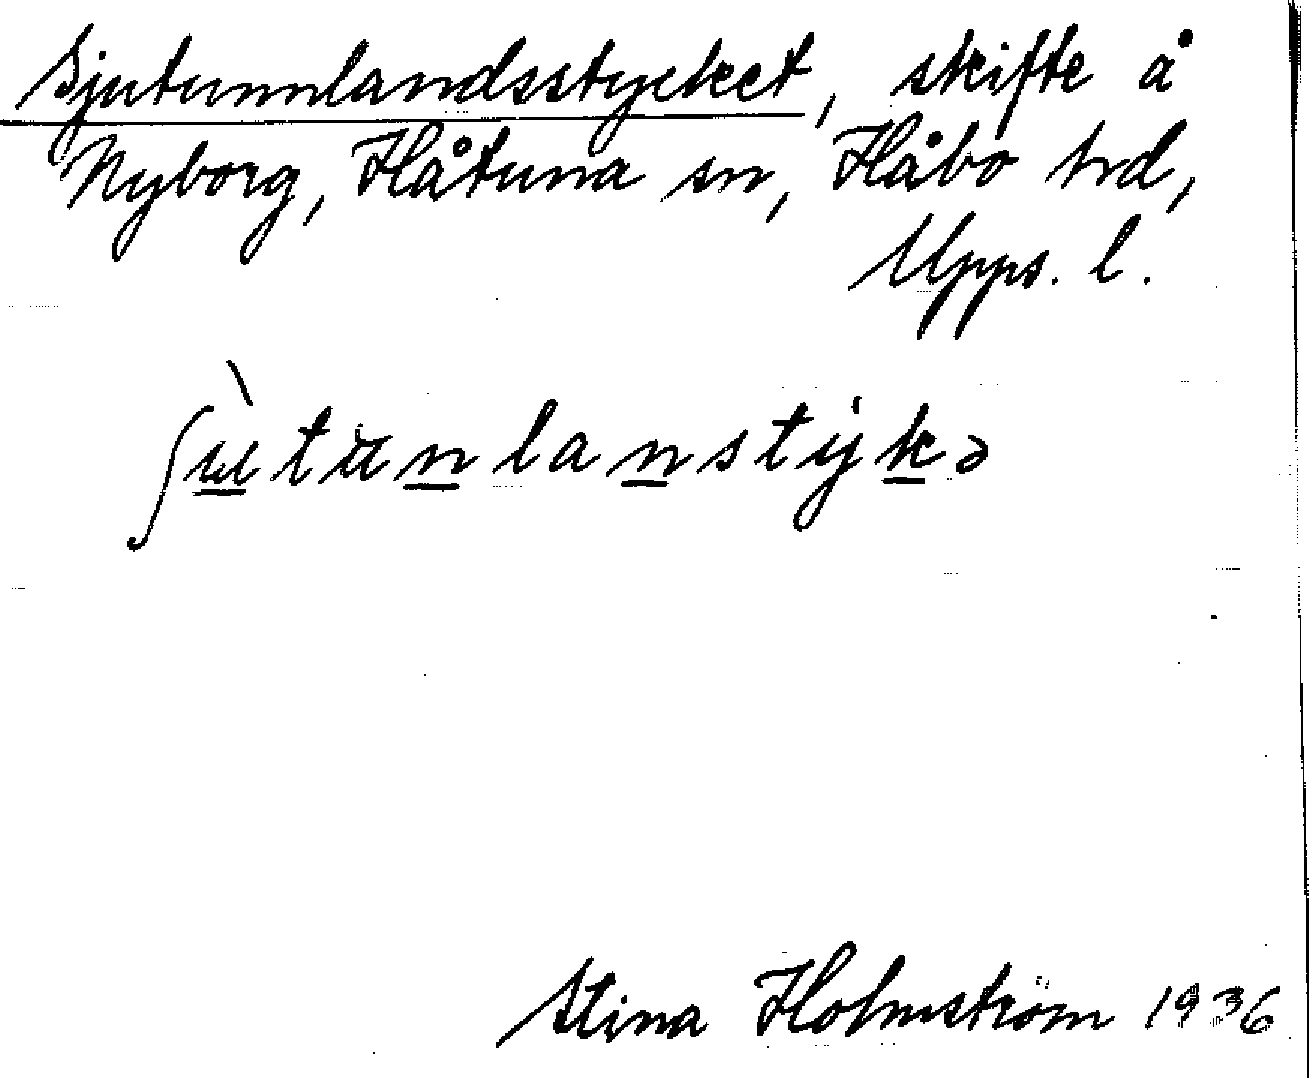 Sjutunnlandsstycket, skifte å
Nyborg, Håtuna sn, Håbo hd,
Upps. l.
ʃù̠tun̠lan̠styk̠ə
Stina Holmström 1936